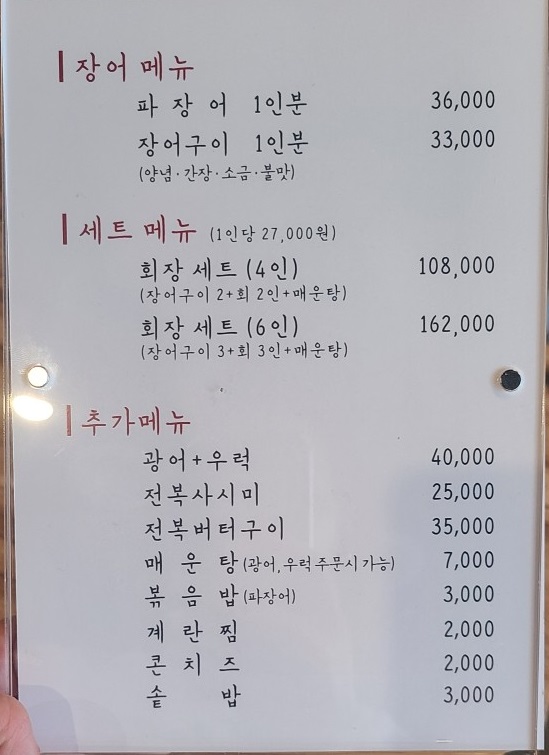 장어 메뉴
파 장 어 1인분 36,000
장어구이 1인분 33,000
(양념·간장·소금·불맛)
세트 메뉴 (1인당 27,000원)
회장 세트 (4인) 108,000
(장어구이 2+회 2인+매운탕)
회장 세트 (6인) 162,000
(장어구이 3+회 3인+매운탕)
추가메뉴
광어+우럭 40,000
전복사시미 25,000
전복버터구이 35,000
매 운 탕 (광어, 우럭 주문시 가능) 7,000
볶 음 밥 (파장어) 3,000
계 란 찜 2,000
콘 치 즈 2,000
솥 밥 3,000